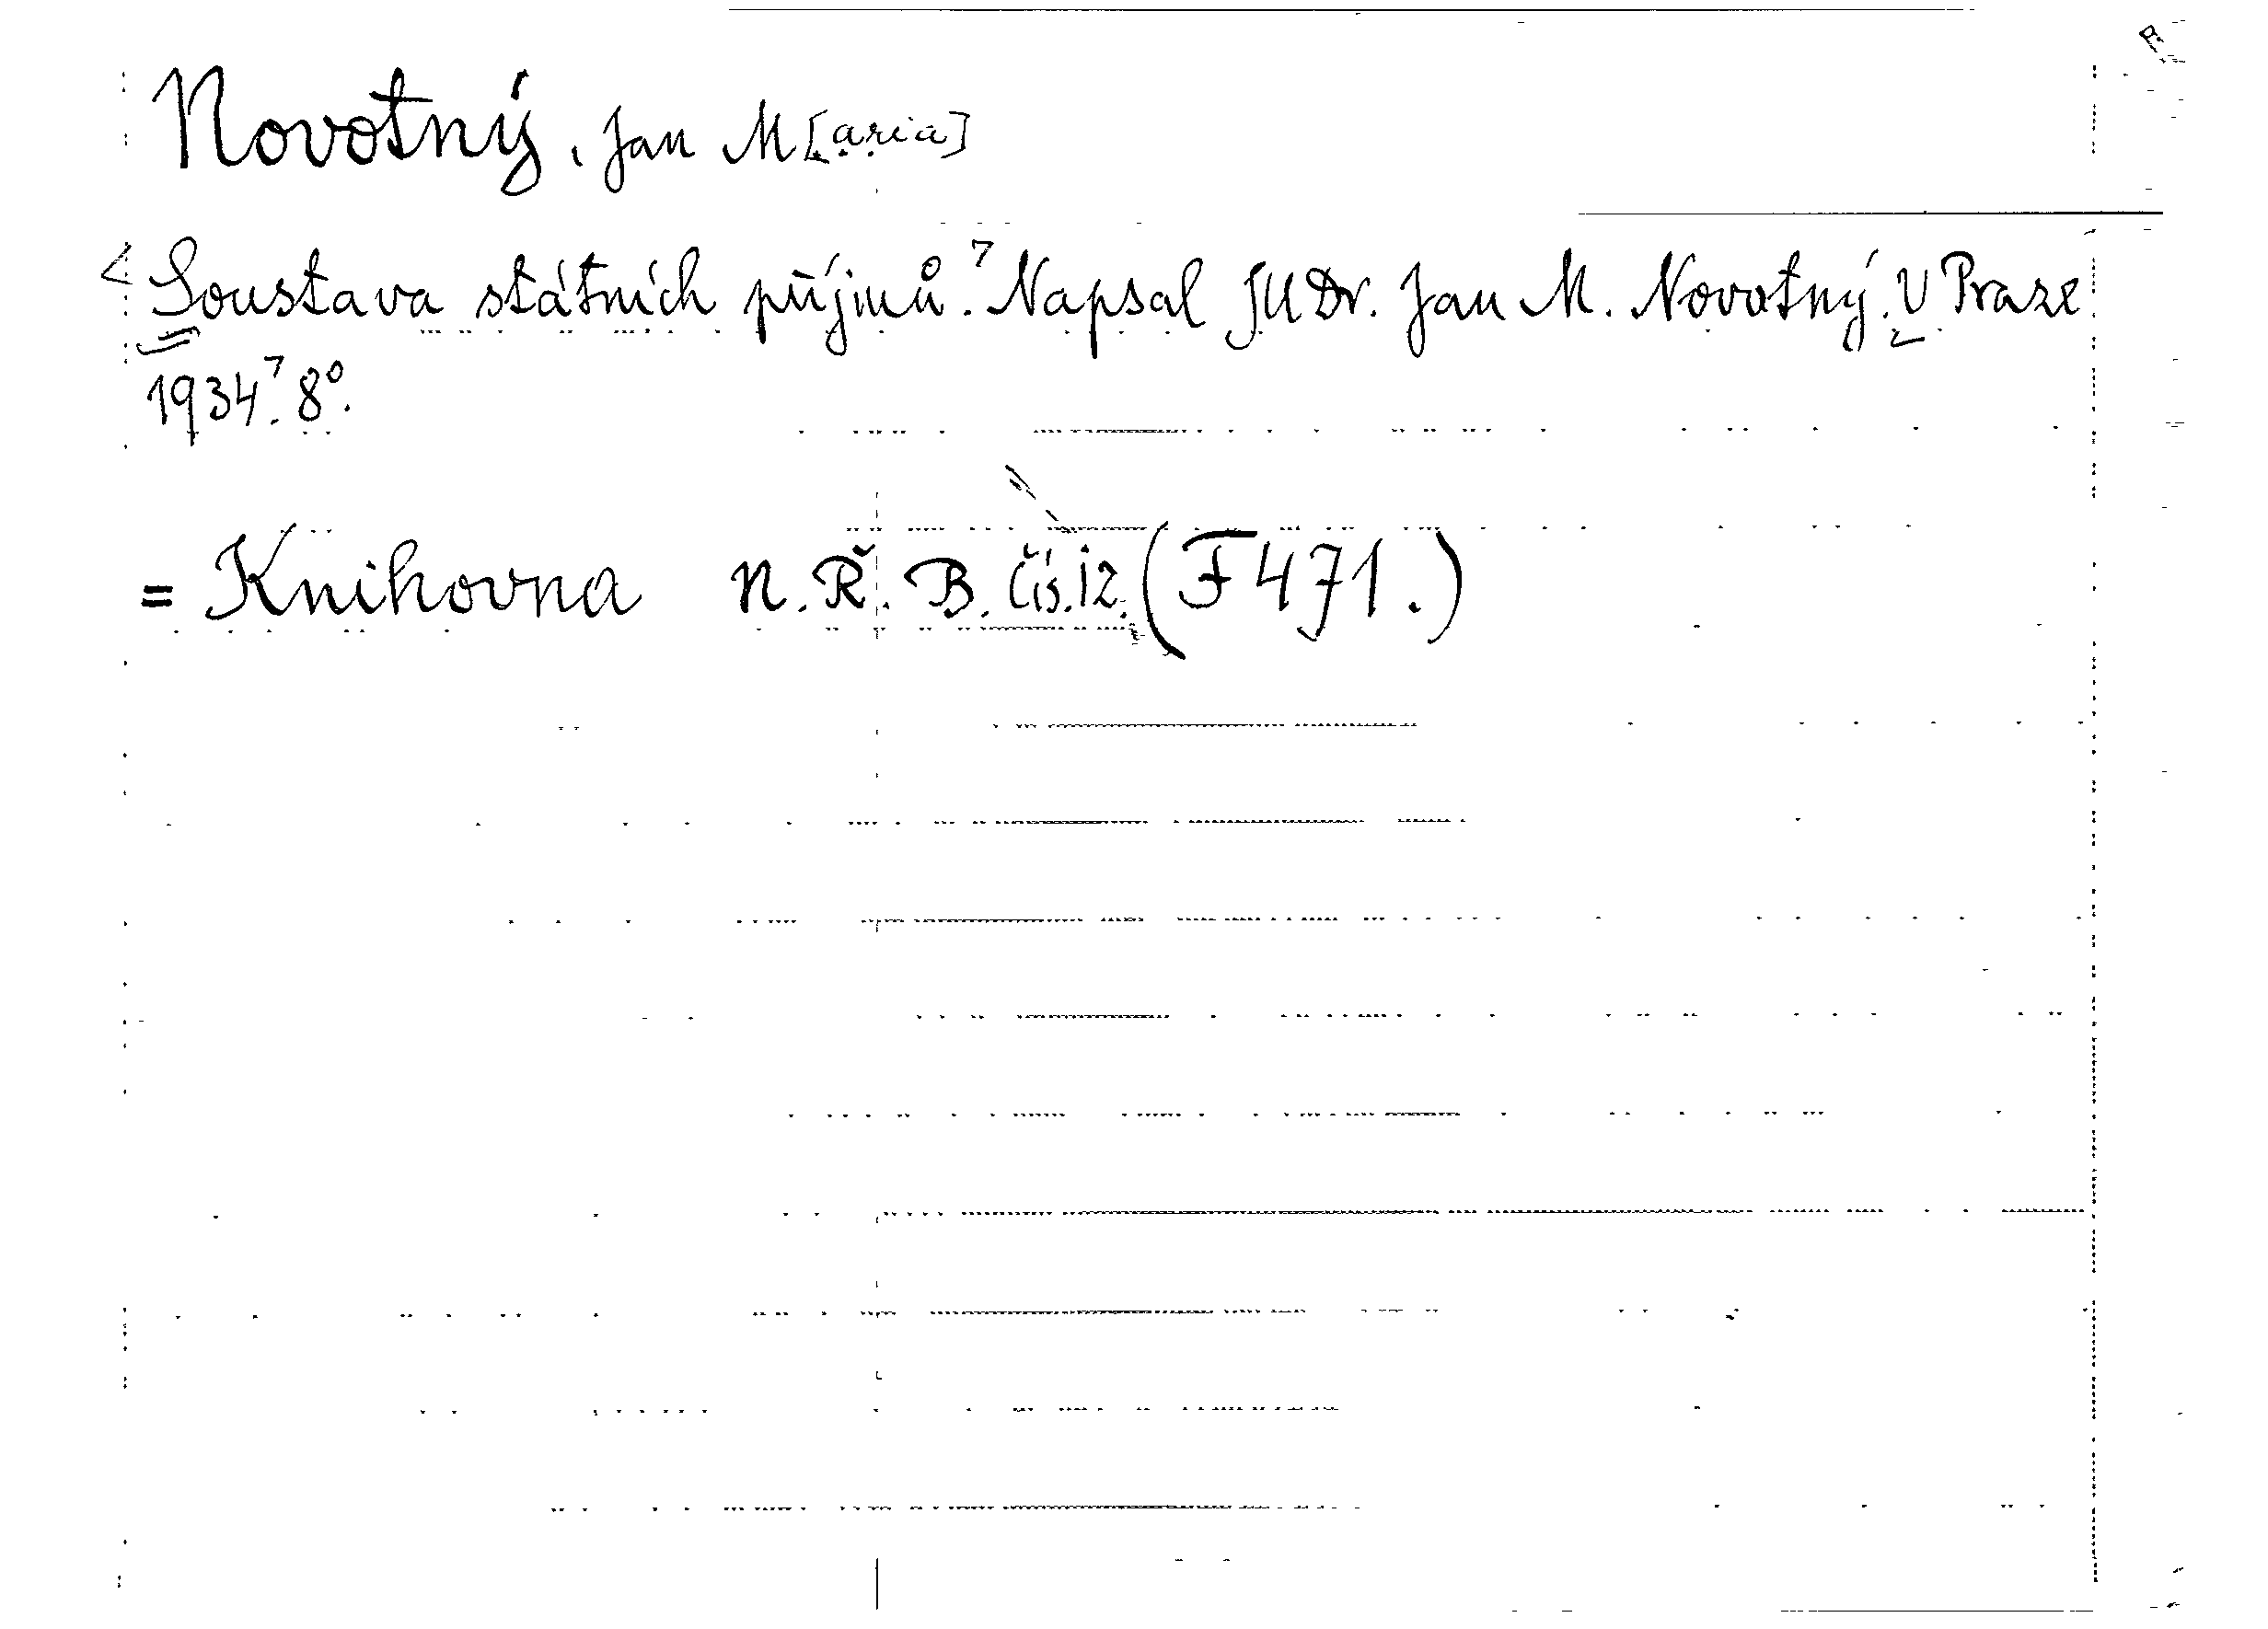 Novotný, Jan M[aria]
Soustava státních příjmů. Napsal JUDr. Jan M. Novotný. V Praze
1934. 8°.
= Knihovna N. Ř. B. Čís. 12. (F 471.)